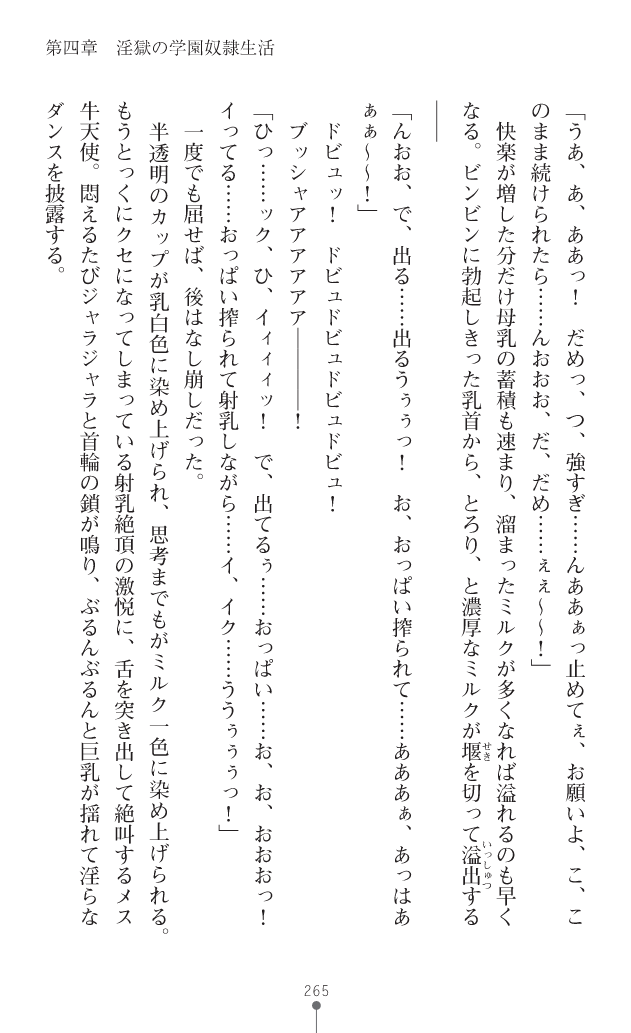 第四章　淫獄の学園奴隷生活
「うあ、あ、ああっ！　だめっ、つ、強すぎ……んああぁっ止めてぇ、お願いよ、こ、こ
のまま続けられたら……んおおお、だ、だめ……ぇぇ～～！」
　快楽が増した分だけ母乳の蓄積も速まり、溜まったミルクが多くなれば溢れるのも早く
なる。ビンビンに勃起しきった乳首から、とろり、と濃厚なミルクが堰せきを切って溢出いっしゅつする
――
「んおお、で、出る……出るうぅぅっ！　お、おっぱい搾られて……あああぁ、あっはあ
ぁぁ～～！」
　ドビュッ！　ドビュドビュドビュドビュ！
　ブッシャアアアアアア――――！
「ひっ……ック、ひ、イィィィッ！　で、出てるぅ……おっぱい……お、お、おおおっ！
イってる……おっぱい搾られて射乳しながら……イ、イク……ううぅぅぅっ！」
　一度でも屈せば、後はなし崩しだった。
　半透明のカップが乳白色に染め上げられ、思考までもがミルク一色に染め上げられる。
もうとっくにクセになってしまっている射乳絶頂の激悦に、舌を突き出して絶叫するメス
牛天使。悶えるたびジャラジャラと首輪の鎖が鳴り、ぶるんぶるんと巨乳が揺れて淫らな
ダンスを披露する。
265